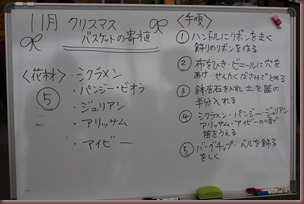 11月 クリスマス
バスケットの寄植
<花材>
⑤
・シクラメン
・パンジー・ビオラ
・ジュリアン
・アリッサム
・アイビー
<手順>
① ハンドルにリボンをまく
飾りのリボンを作る
② 布をひき・ビニールに穴を
あけ せんたくばさみでとめる
③ 鉢底石を入れ 土を器の
半分入れる
④ シクラメン・パンジー・ジュリアン
アリッサム・アイビーの順で
苗をうえる
⑤ バークチップ・ベルを飾る